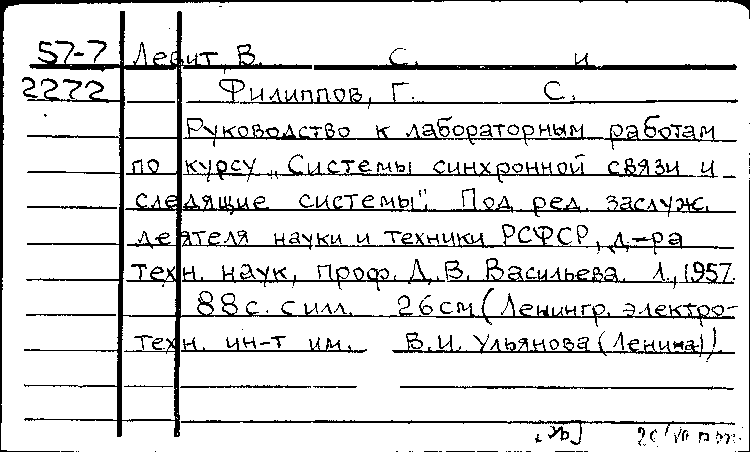 57-7 Левит, В. С. и
2272 Филиппов, Г. С.
Руководство к лабораторным работам
по курсу „Системы синхронной связи и
следящие системы". Под ред. заслуж.
деятеля науки и техники РСФСР, д-ра
техн. наук, проф. Д. В. Васильева. Л., 1957.
88 с. с илл. 26 см (Ленингр. электро-
техн. ин-т им. В. И. Ульянова (Ленина)).